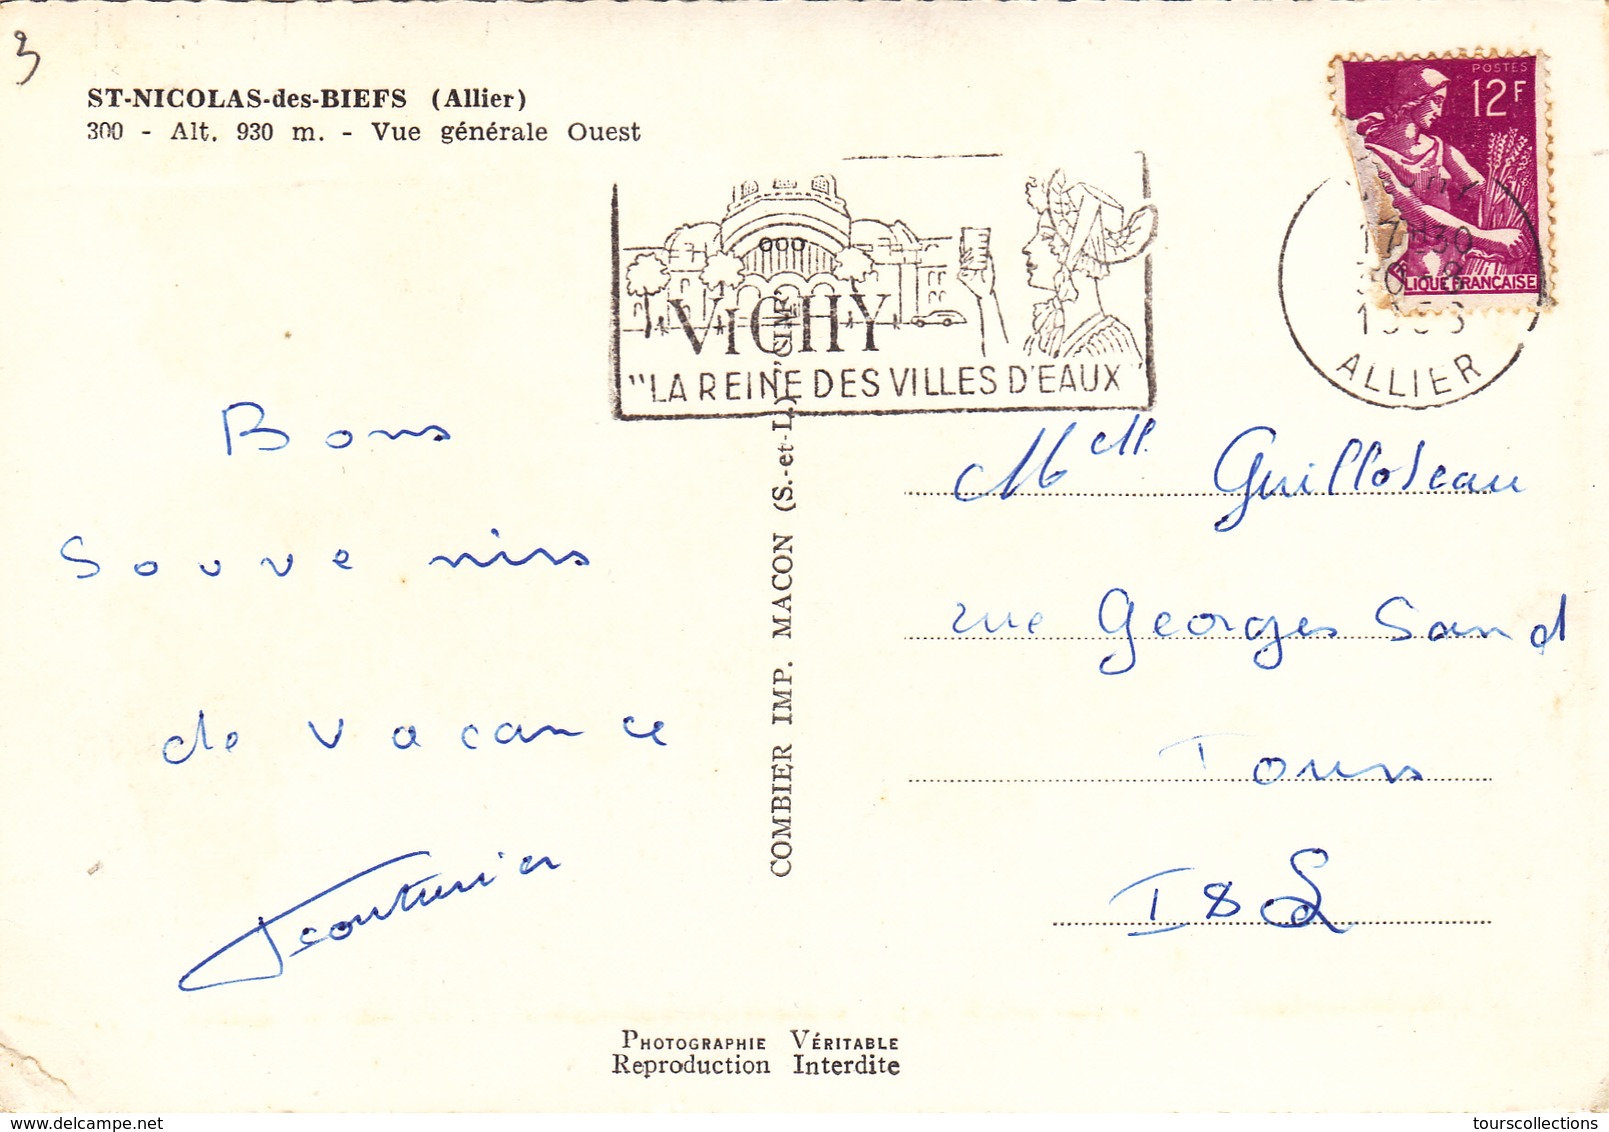 3
ST-NICOLAS-des-BIEFS (Allier)
300 - Alt. 930 m. - Vue générale Ouest
POSTES
12F
LIQUE FRANÇAISE
ALLIER
VICHY
"LA REINE DES VILLES D'EAUX"
Bons
Souvenirs
de vacance
Jcouturier
COMBIER IMP. MACON (S.-et-L.) "CIM"
Mell. Guilloteau
rue Georges Sand
Tours
I & L
PHOTOGRAPHIE VÉRITABLE
Reproduction Interdite
delcampe.net
tourscollections